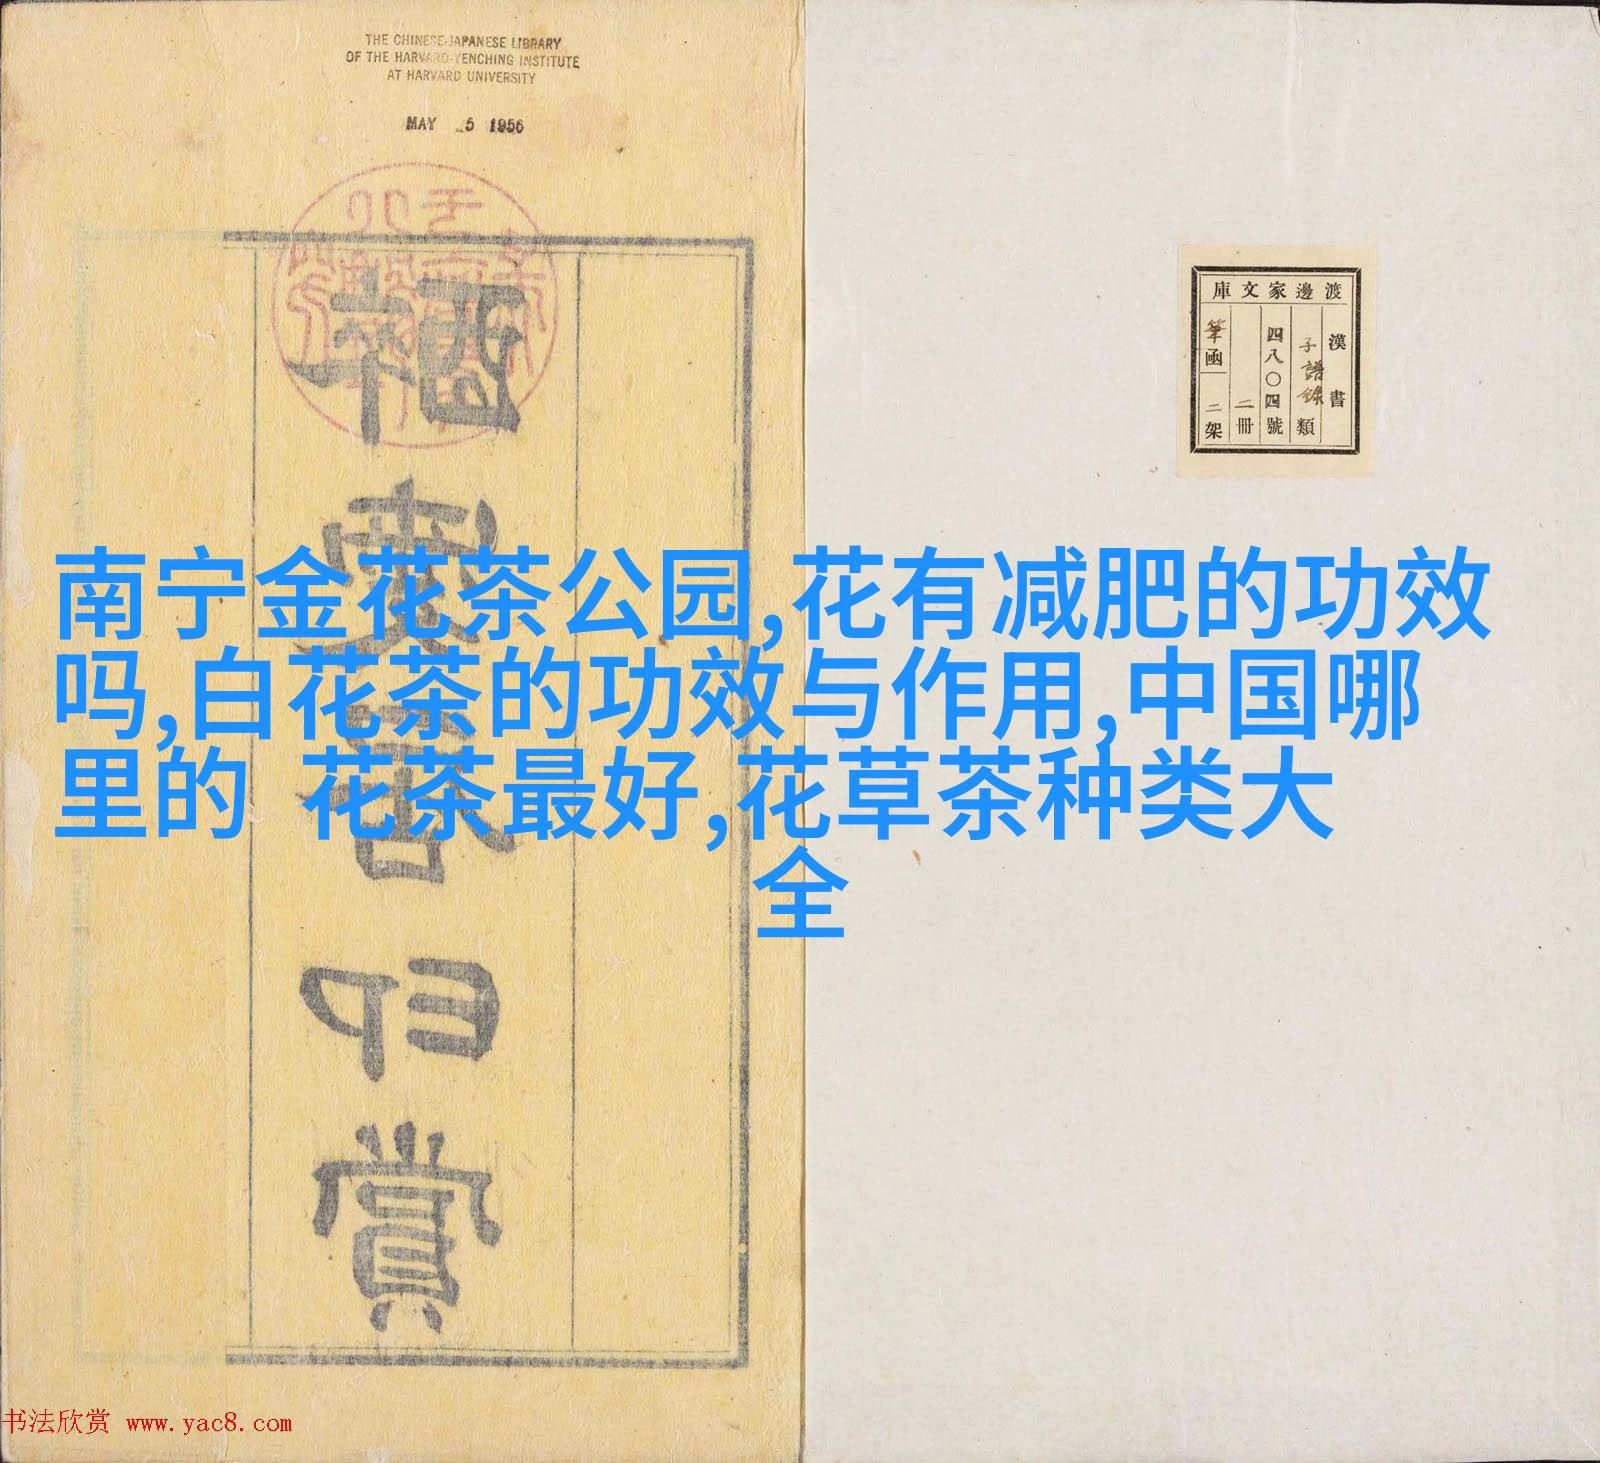 THE CHINESE-JAPANESE LIBRARY
OF THE HARVARD-YENCHING INSTITUTE
AT HARVARD UNIVERSITY
MAY 25 1956
渡邊家文庫
漢書
子譜錄類
四八〇四號
二冊
筆函
二架
南宁金花茶公园,花有减肥的功效
吗,白花茶的功效与作用,中国哪
里的 花茶最好,花草茶种类大
全
賞
书法欣赏 www.yac8.com